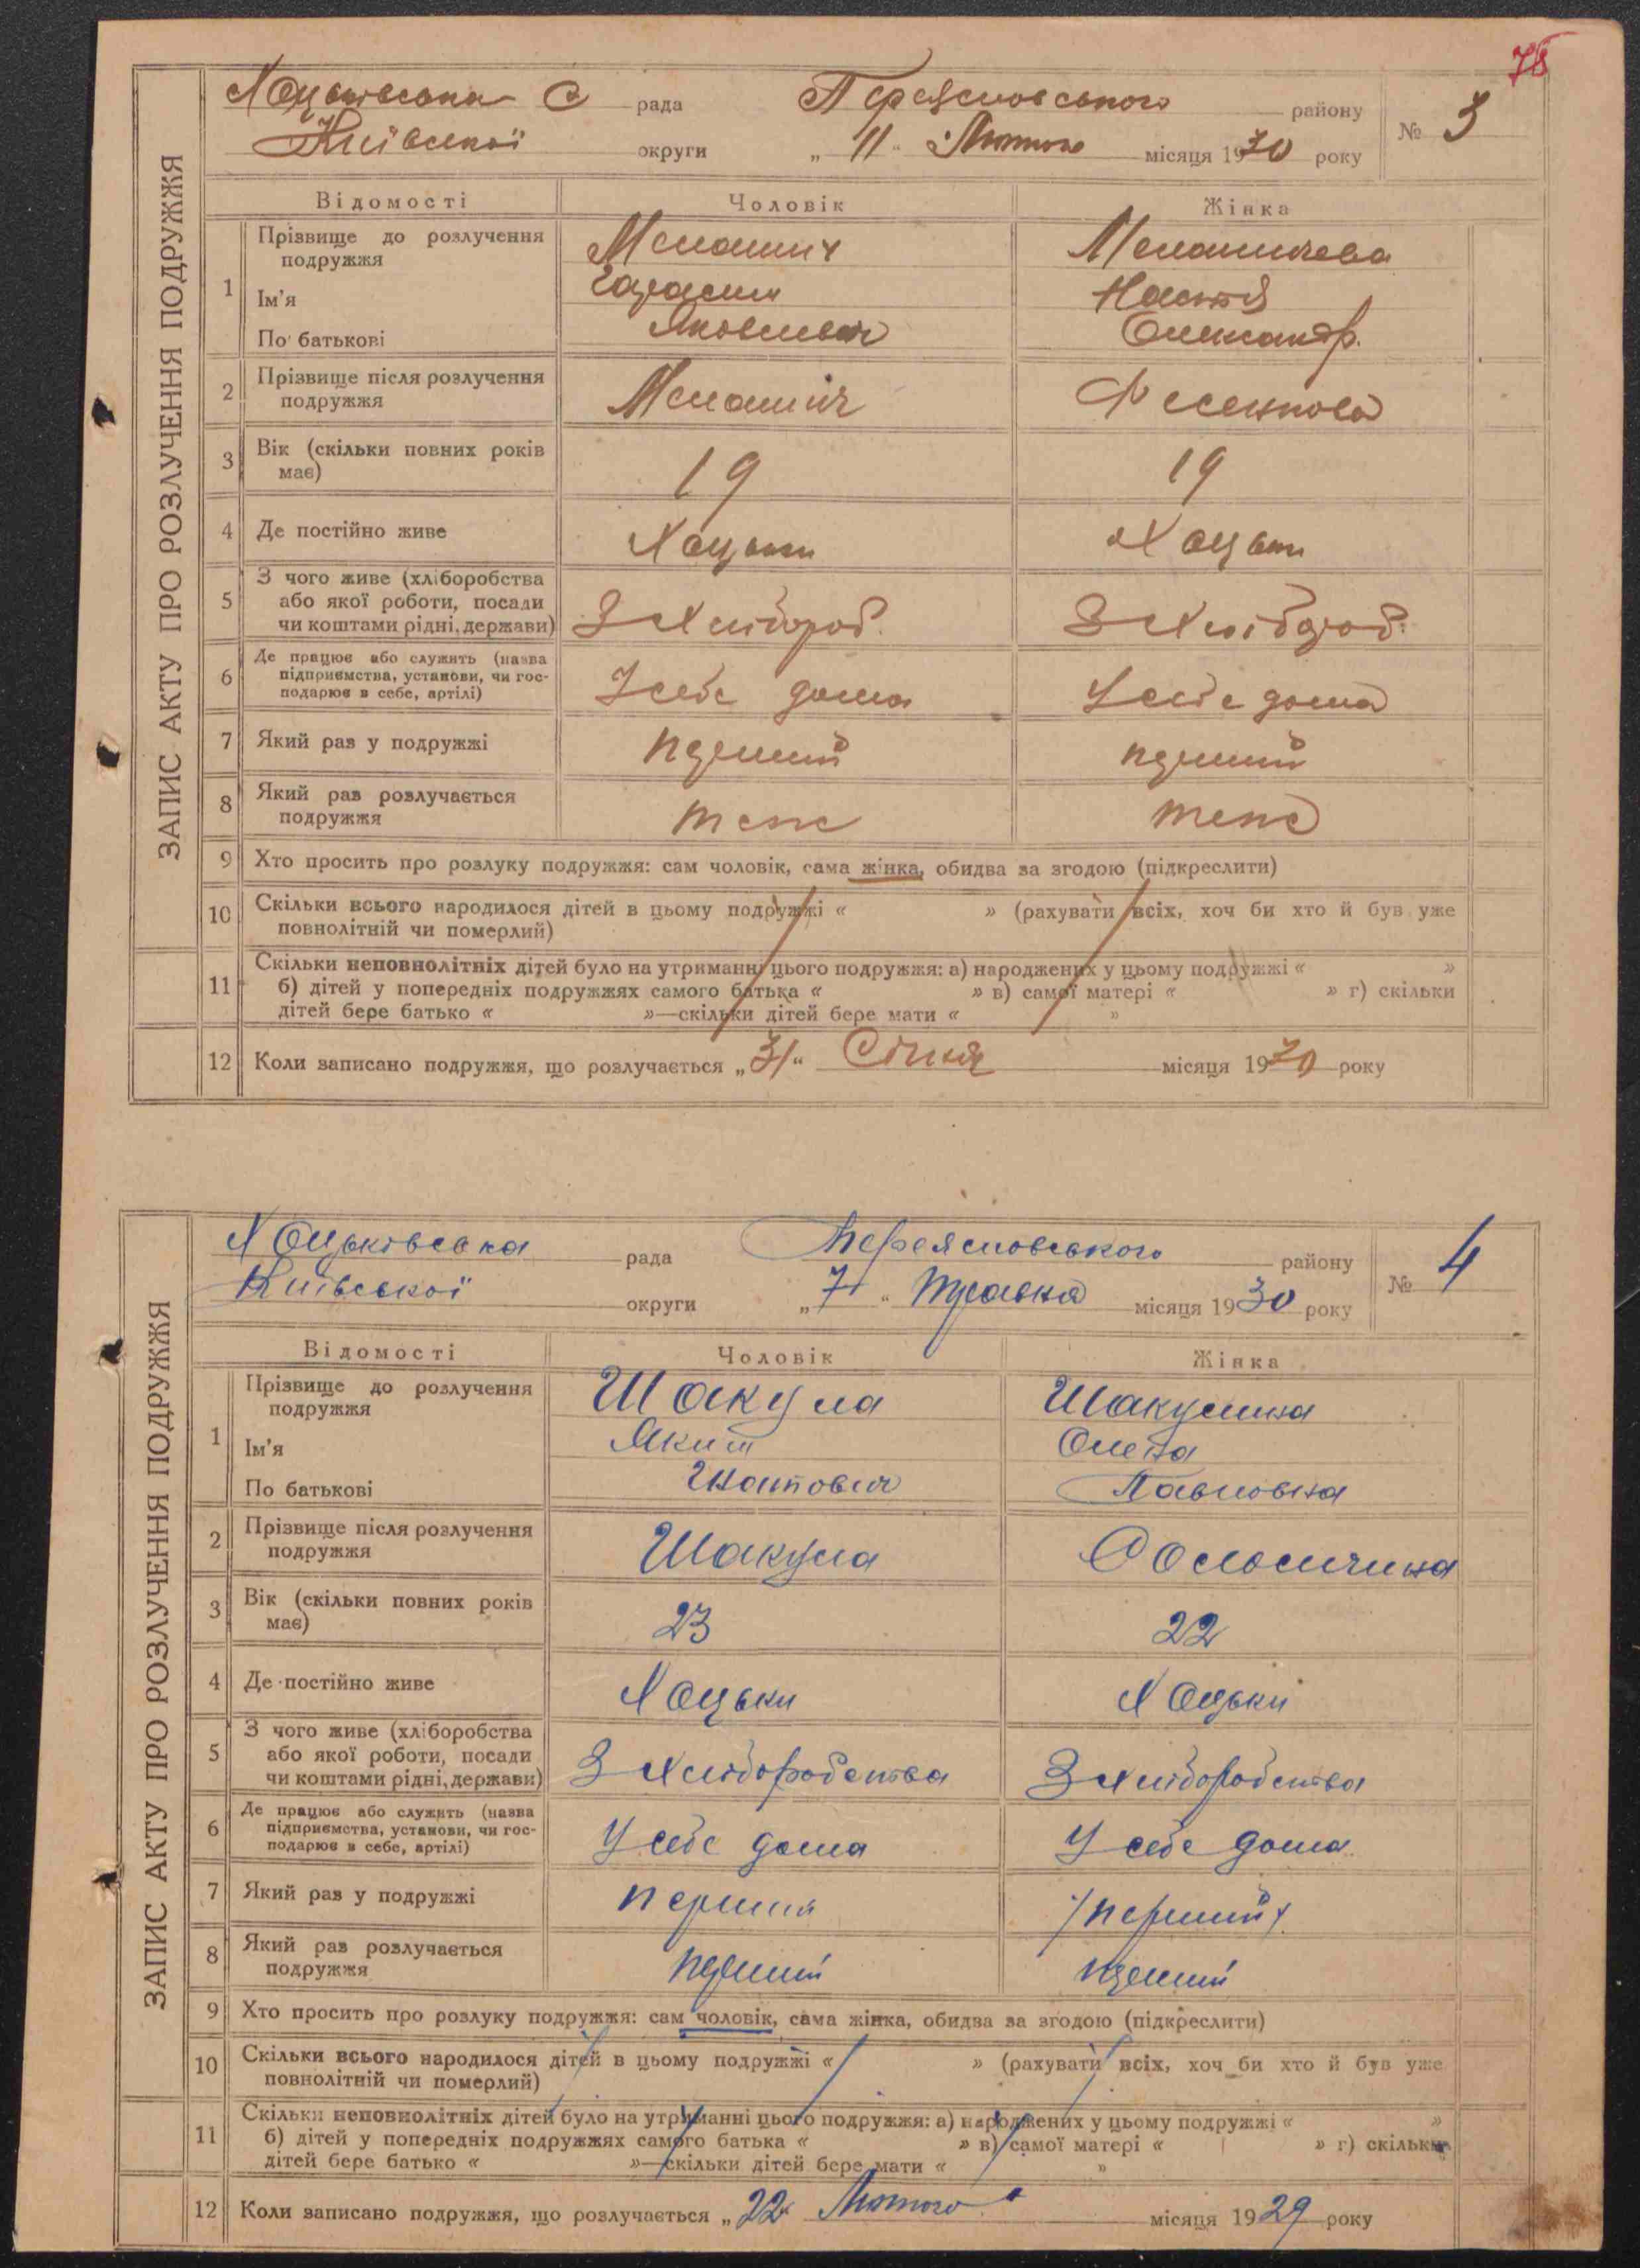 78
ЗАПИС АКТУ ПРО РОЗЛУЧЕННЯ ПОДРУЖЖЯ
Хоцьківська С рада Переяславського району № 3
Київської округи „ 11 “ Лютого місяця 1930 року
Відомості Чоловік Жінка
1 Прізвище до розлучення подружжя Меланич Меланичева
Ім'я Гарасим Настя
По батькові Яковлевич Олександр.
2 Прізвище після розлучення подружжя Меланич Фесенкова
3 Вік (скільки повних років має) 19 19
4 Де постійно живе Хоцьки Хоцьки
5 З чого живе (хліборобства або якої роботи, посади чи коштами рідні, держави) З Хлібороб. З Хлібороб.
6 Де працює або служить (назва підприємства, установи, чи господарює в себе, артілі) У себе дома У себе дома
7 Який раз у подружжі перший перший
8 Який раз розлучається подружжя теж теж
9 Хто просить про розлуку подружжя: сам чоловік, сама жінка, обидва за згодою (підкреслити)
10 Скільки всього народилося дітей в цьому подружжі « » (рахувати всіх, хоч би хто й був уже
повнолітній чи померлий)
11 Скільки неповнолітніх дітей було на утриманні цього подружжя: а) народжених у цьому подружжі « »
б) дітей у попередніх подружжях самого батька « » в) самої матері « » г) скільки
дітей бере батько « »—скільки дітей бере мати « »
12 Коли записано подружжя, що розлучається „ 31 “ Січня місяця 1930 року
ЗАПИС АКТУ ПРО РОЗЛУЧЕННЯ ПОДРУЖЖЯ
Хоцьківська рада Переяславського району № 4
Київської округи „ 7 “ Травня місяця 1930 року
Відомості Чоловік Жінка
1 Прізвище до розлучення подружжя Шакула Шакулина
Ім'я Яким Олена
По батькові Гнатович Павловна
2 Прізвище після розлучення подружжя Шакула
3 Вік (скільки повних років має) 23 22
4 Де постійно живе Хоцьки Хоцьки
5 З чого живе (хліборобства або якої роботи, посади чи коштами рідні, держави) З Хліборобства З Хліборобства
6 Де працює або служить (назва підприємства, установи, чи господарює в себе, артілі) У себе дома У себе дома
7 Який раз у подружжі перший перший
8 Який раз розлучається подружжя перший перший
9 Хто просить про розлуку подружжя: сам чоловік, сама жінка, обидва за згодою (підкреслити)
10 Скільки всього народилося дітей в цьому подружжі « » (рахувати всіх, хоч би хто й був уже
повнолітній чи померлий)
11 Скільки неповнолітніх дітей було на утриманні цього подружжя: а) народжених у цьому подружжі « »
б) дітей у попередніх подружжях самого батька « » в) самої матері « » г) скільки
дітей бере батько « »—скільки дітей бере мати « »
12 Коли записано подружжя, що розлучається „ 22 “ Лютого місяця 1929 року